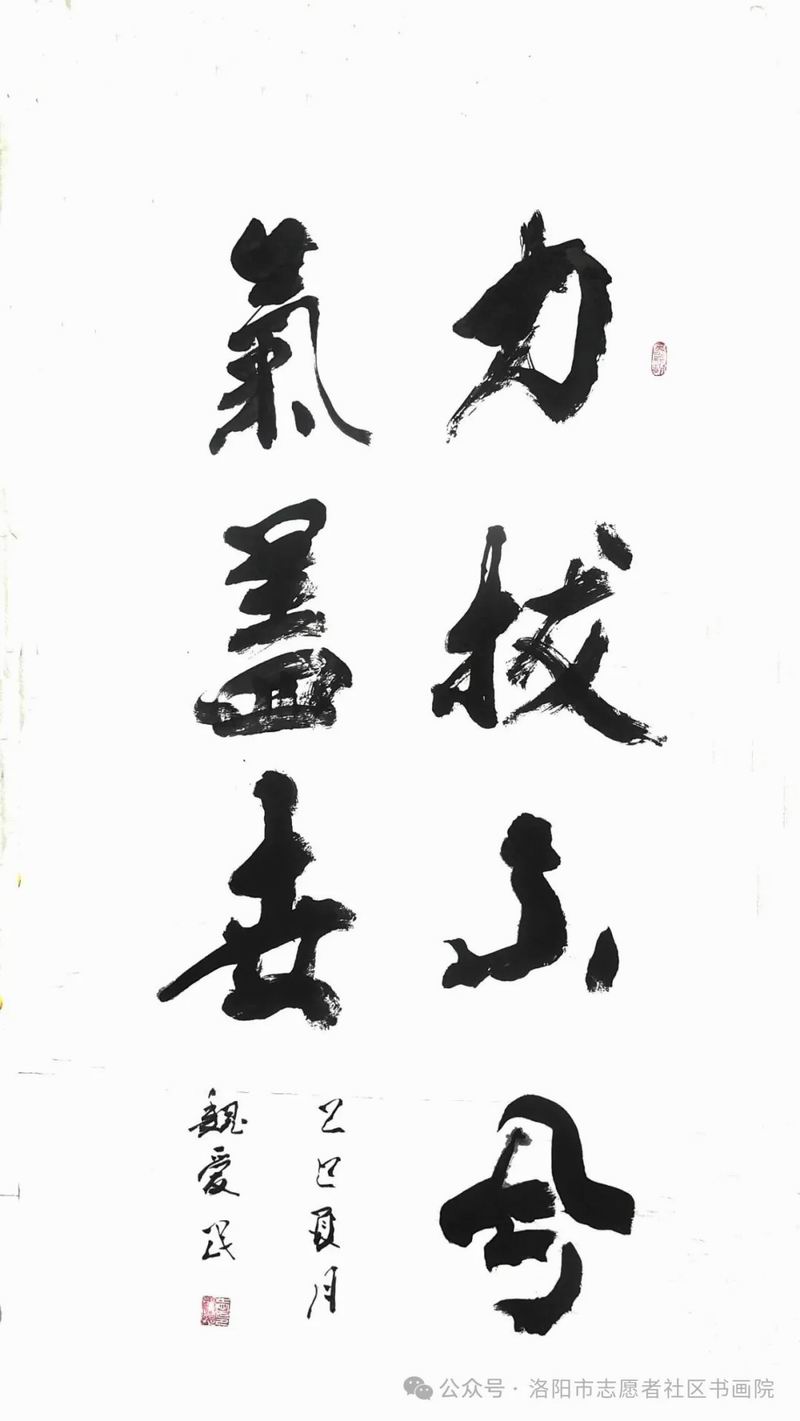 力拔山兮
氣盖世
乙巳夏月
魏爱民
公众号·洛阳市志愿者社区书画院